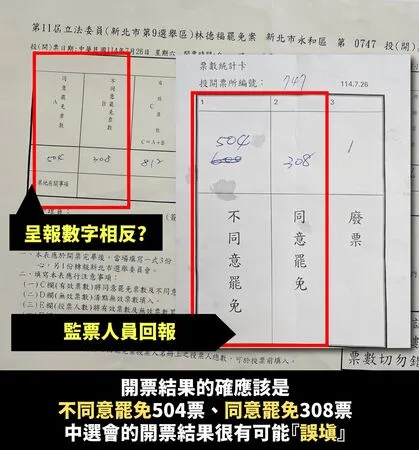 第11屆立法委員(新北市第9選舉區)林德福罷免案 新北市永和區 第 0747 投(開)
投(開)票日期:中華民國114年7月26日 星期六
票數統計卡
投開票所編號: 747 114.7.26
同意罷免票數 A
不同意罷免票數 B
有 C
C=A+B
504 308 812
其他有關事項
1 2 3
504 308 1
不同意罷免
同意罷免
廢票
呈報數字相反?
一、本表應於開票完畢後,當場填寫一式3份
心,另1份轉報新北市選舉委員會。
二、填寫本表應行注意事項:
(一)C欄(有效票數)將同意罷免票數及不同意
(二)D欄(無效票數)清點無效票數填入。
(三)E欄(投票人數)將有效票數及無效票數累
監票人員回報
票數切勿錯
開票結果的確應該是
不同意罷免504票、同意罷免308票
中選會的開票結果很有可能『誤填』